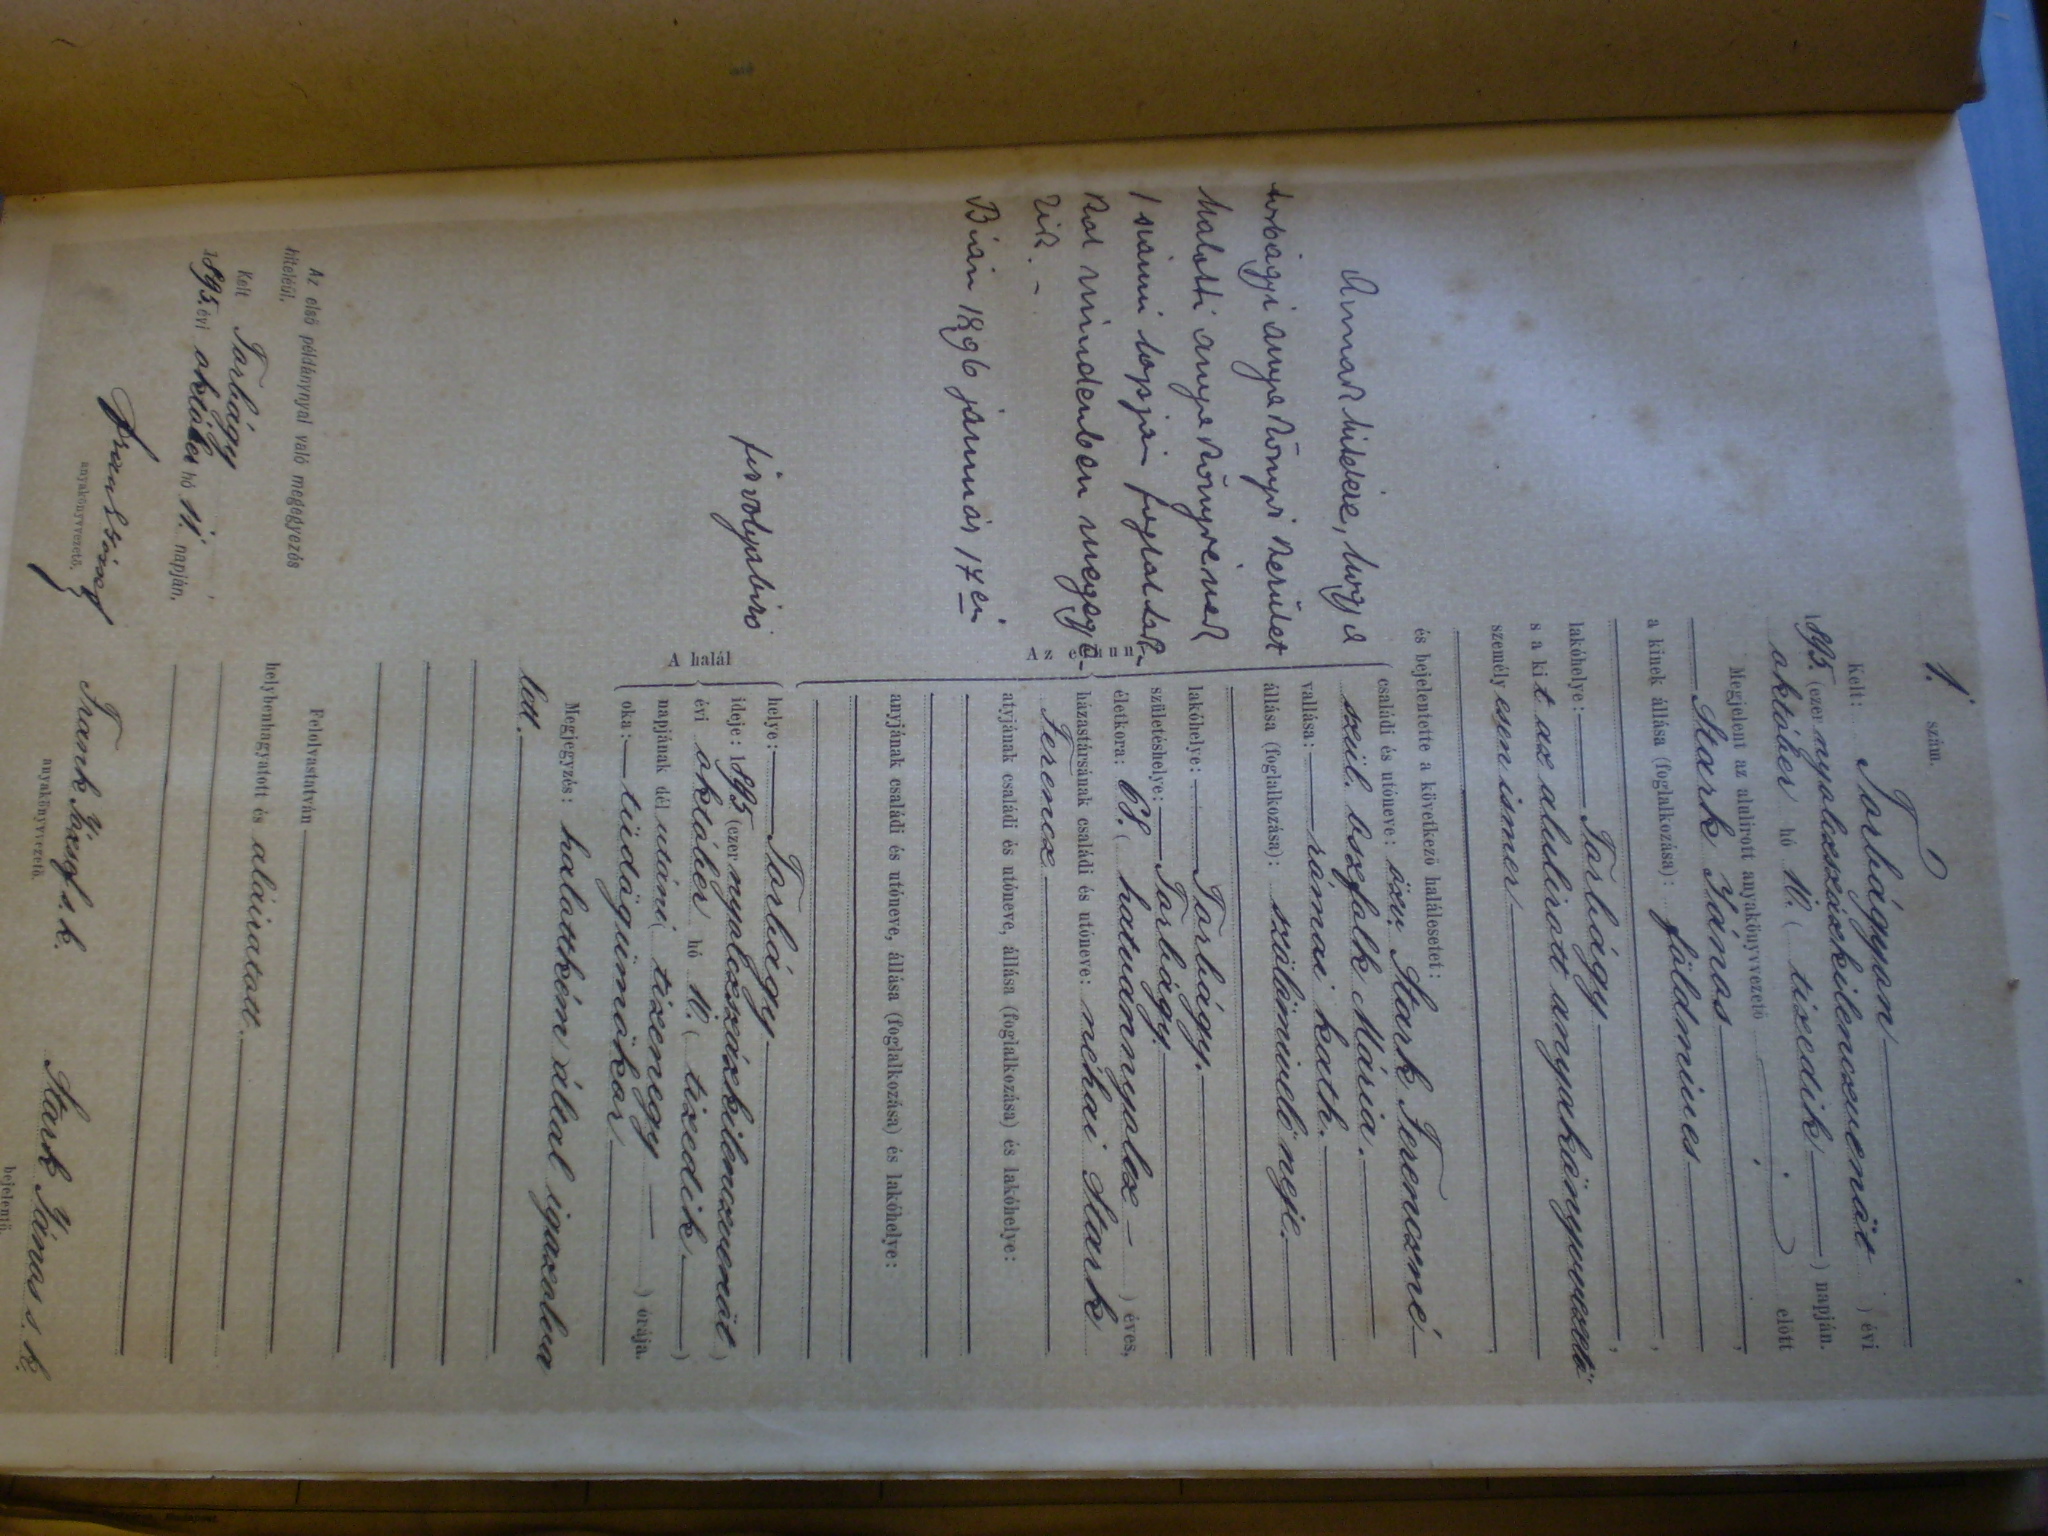 1. szám.
Kelt: Torbágyon
1895. (ezer nyolczszázkilenczvenöt ) évi
október hó 10. ( tizedik ) napján.
Megjelent az alulirott anyakönyvvezető előtt
Stark János,
a kinek állása (foglalkozása): földmives,
lakóhelye: Torbágy,
s a kit az alulirott anyakönyvvezető
személyesen ismer,
és bejelentette a következő halálesetet:
Az elhunyt
családi és utóneve: özv. Stark Ferenczné
szül. Oszfolk Mária.
vallása: római kath.
állása (foglalkozása): szőlőmivelő neje.
lakóhelye: Torbágy.
születéshelye: Torbágy.
életkora: 68. ( hatvannyolcz ) éves,
házastársának családi és utóneve: néhai Stark
Ferencz
atyjának családi és utóneve, állása (foglalkozása) és lakóhelye:
anyjának családi és utóneve, állása (foglalkozása) és lakóhelye:
A halál
helye: Torbágy
ideje: 1895 (ezer nyolczszázkilenczvenöt )
évi október hó 10. ( tizedik )
napjának dél utáni ( tizenegy ) órája.
oka: tüdőgümőkór
Megjegyzés: halottkém által igazolva
lett.
Felolvastatván
helybenhagyatott és aláiratott.
Frank József s. k.
anyakönyvvezető.
Stark János s. k.
bejelentő.
Annak hitelére, hogy a
torbágyi anyakönyvi kerület
halotti anyakönyvének
1 számú lapján foglaltak-
kal mindenben megegye-
zik. -
Bián 1896 január 17én
főszolgabiró
Az első példánynyal való megegyezés
hiteléül.
Kelt Torbágy
1895. évi október hó 11. napján.
Frank József
anyakönyvvezető.